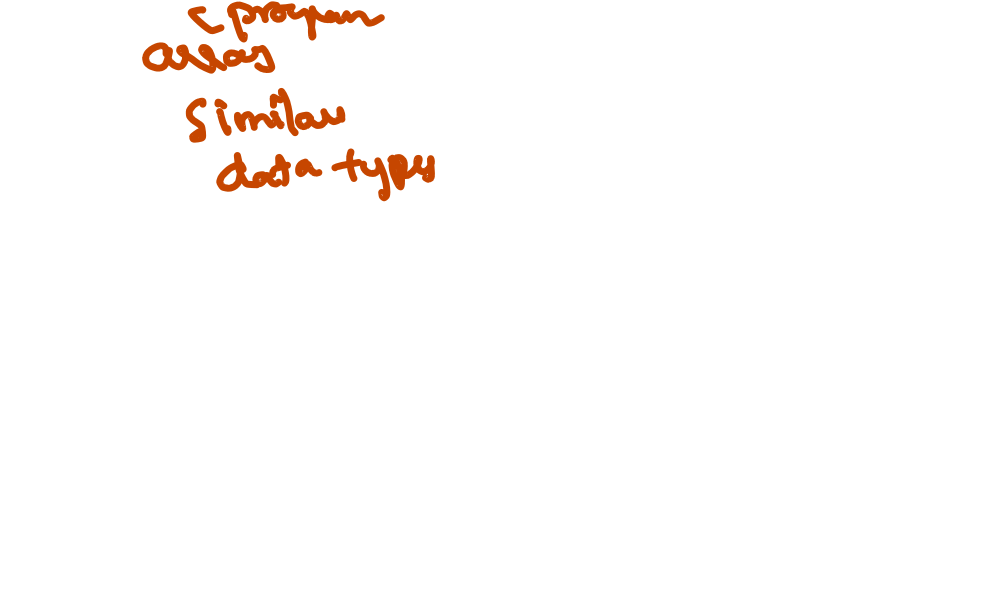 C program
array
Similar
data type